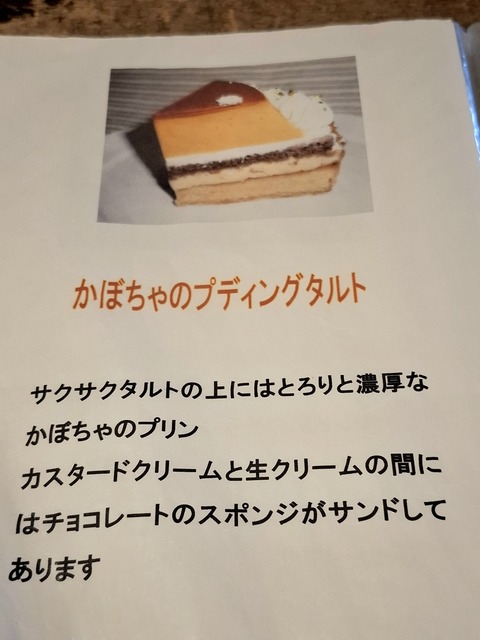 かぼちゃのプディングタルト
サクサクタルトの上にはとろりと濃厚な
かぼちゃのプリン
カスタードクリームと生クリームの間に
はチョコレートのスポンジがサンドして
あります